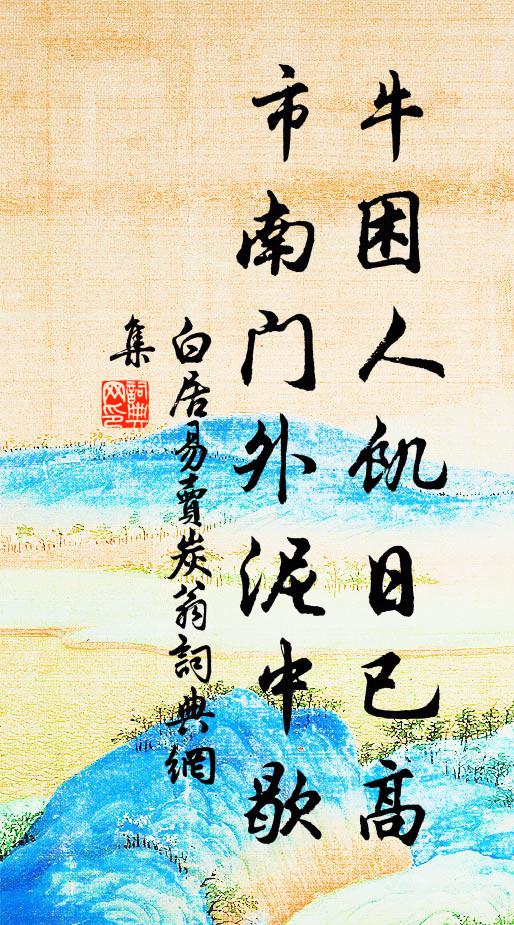 牛困人飢日已高
市南门外泥中歇
白居易賣炭翁詞典網
集
詞典
网印